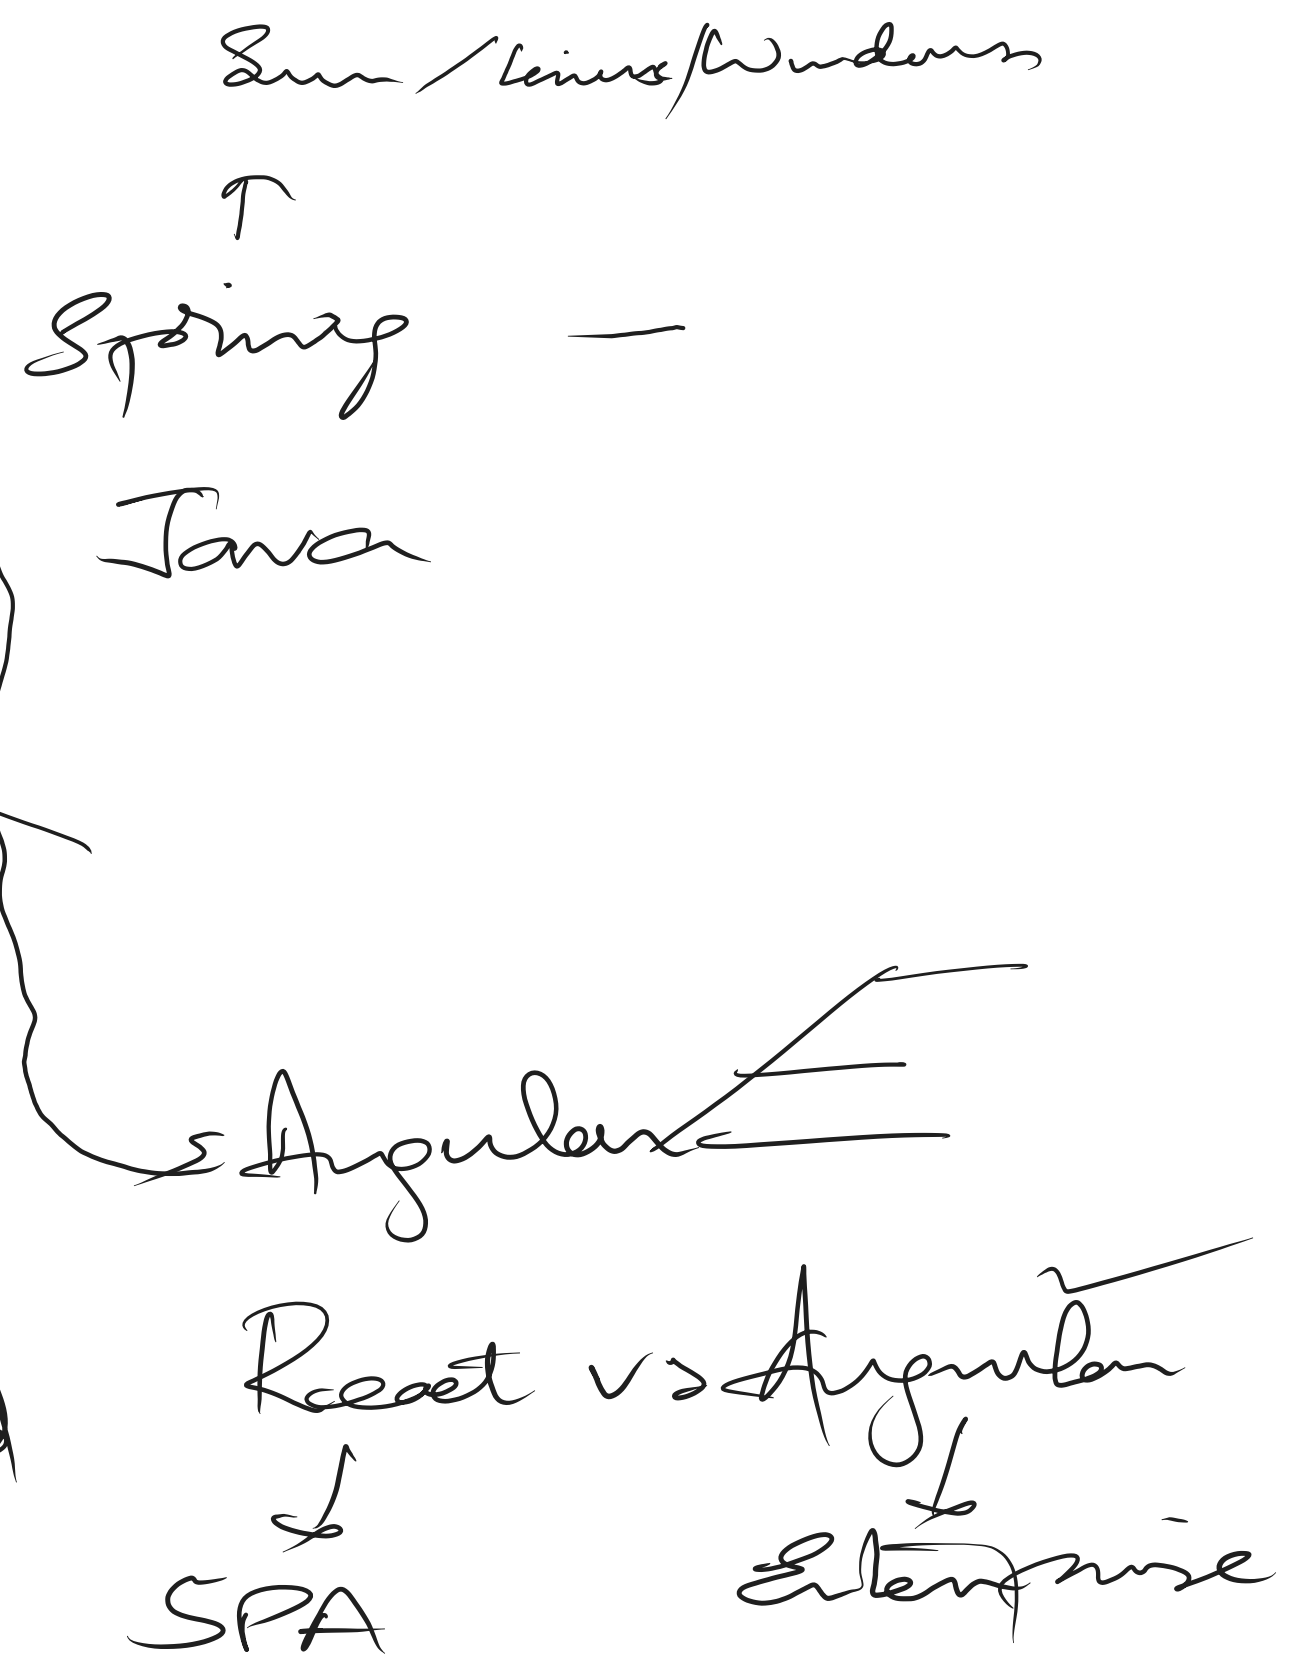 Sun / Linux / Windows
Spring
Java
Angular
React vs Angular
SPA
Enterprise